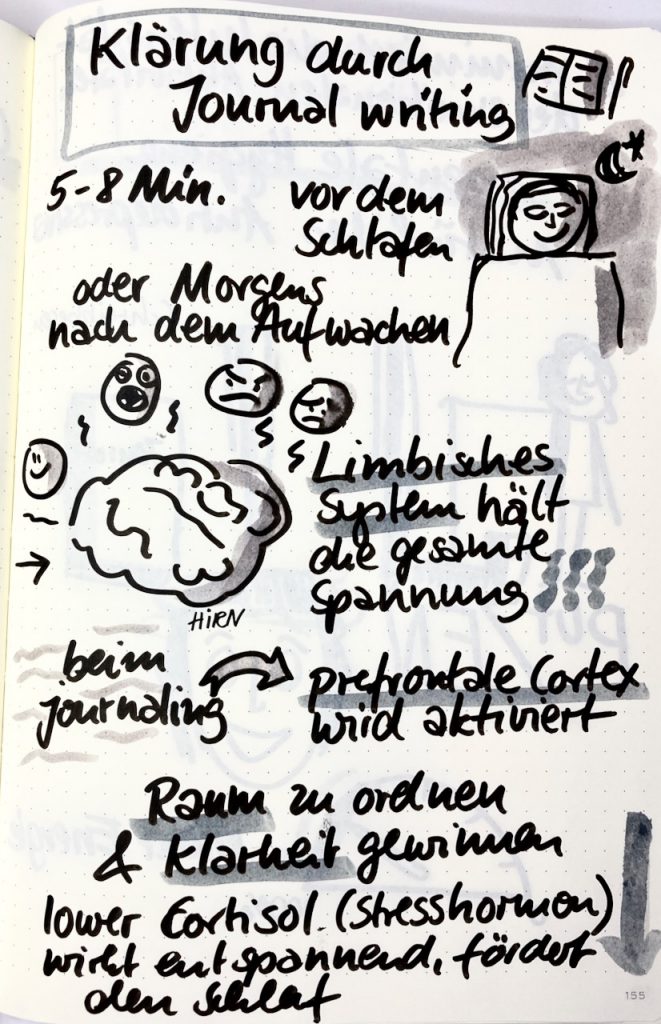 Klärung durch
Journal writing
5-8 Min. vor dem
Schlafen
oder Morgens
nach dem Aufwachen
Limbisches
System hält
die gesamte
Spannung
HIRN
beim
journaling
prefrontale Cortex
wird aktiviert
Raum zu ordnen
& Klarheit gewinnen
lower Cortisol (Stresshormon)
wirkt entspannend, fördert
den Schlaf
155